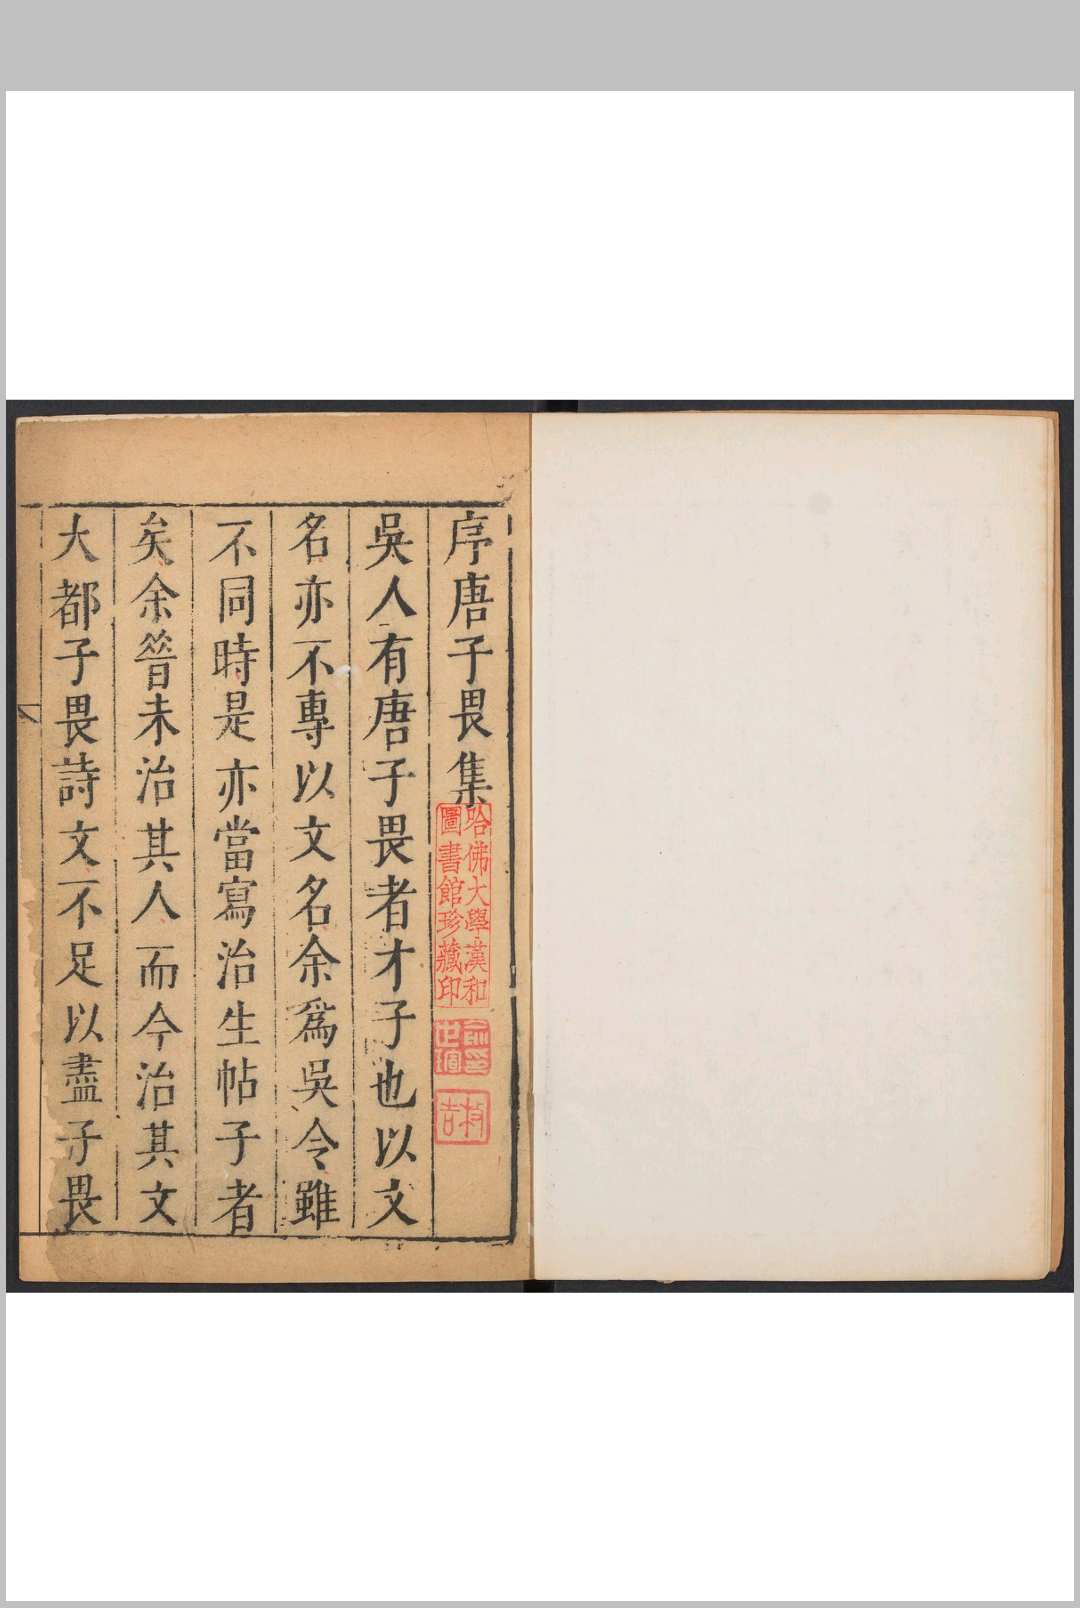 序唐子畏集
哈佛大學漢和
圖書館珍藏印
吳人有唐子畏者才子也以文
名亦不專以文名余爲吳令雖
不同時是亦當寫治生帖子者
矣余昝未治其人而今治其文
大都子畏詩文不足以盡子畏